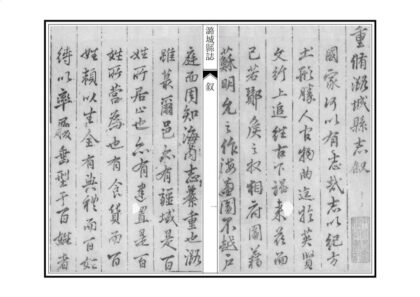 重脩潞城縣志叙
國家何以有志哉志以紀方
土形勝人古物曲迄於英賢
文行上追往古下詔來茲而
已若鄼侯之收相府圖籍
蘇明允之作海圖不越戶
潞城縣誌
叙
庭而周知海內志綦重也潞
雖蕞爾邑亦有疆域是百
姓所居止也亦有建置是百
姓所營為也有食貨而百
姓賴以生全有典秩而百姓
待以率服垂型于百姓者